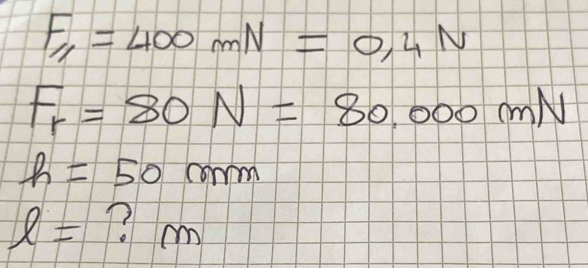 F// = 400 mN = 0,4 N
Fr = 80 N = 80.000 mN
h = 50 mm
l = ? m